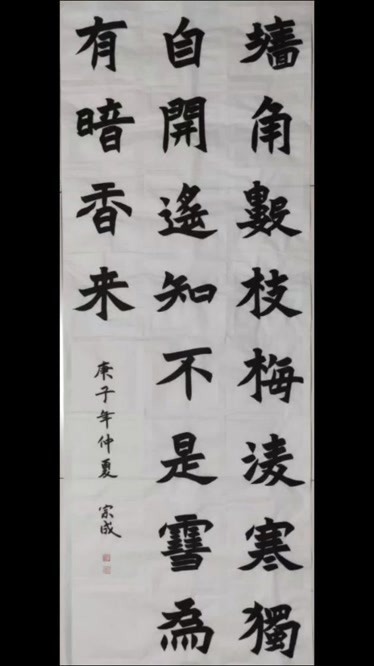 墻角數枝梅凌寒獨
自開遙知不是雪為
有暗香来
庚子年仲夏 宗成